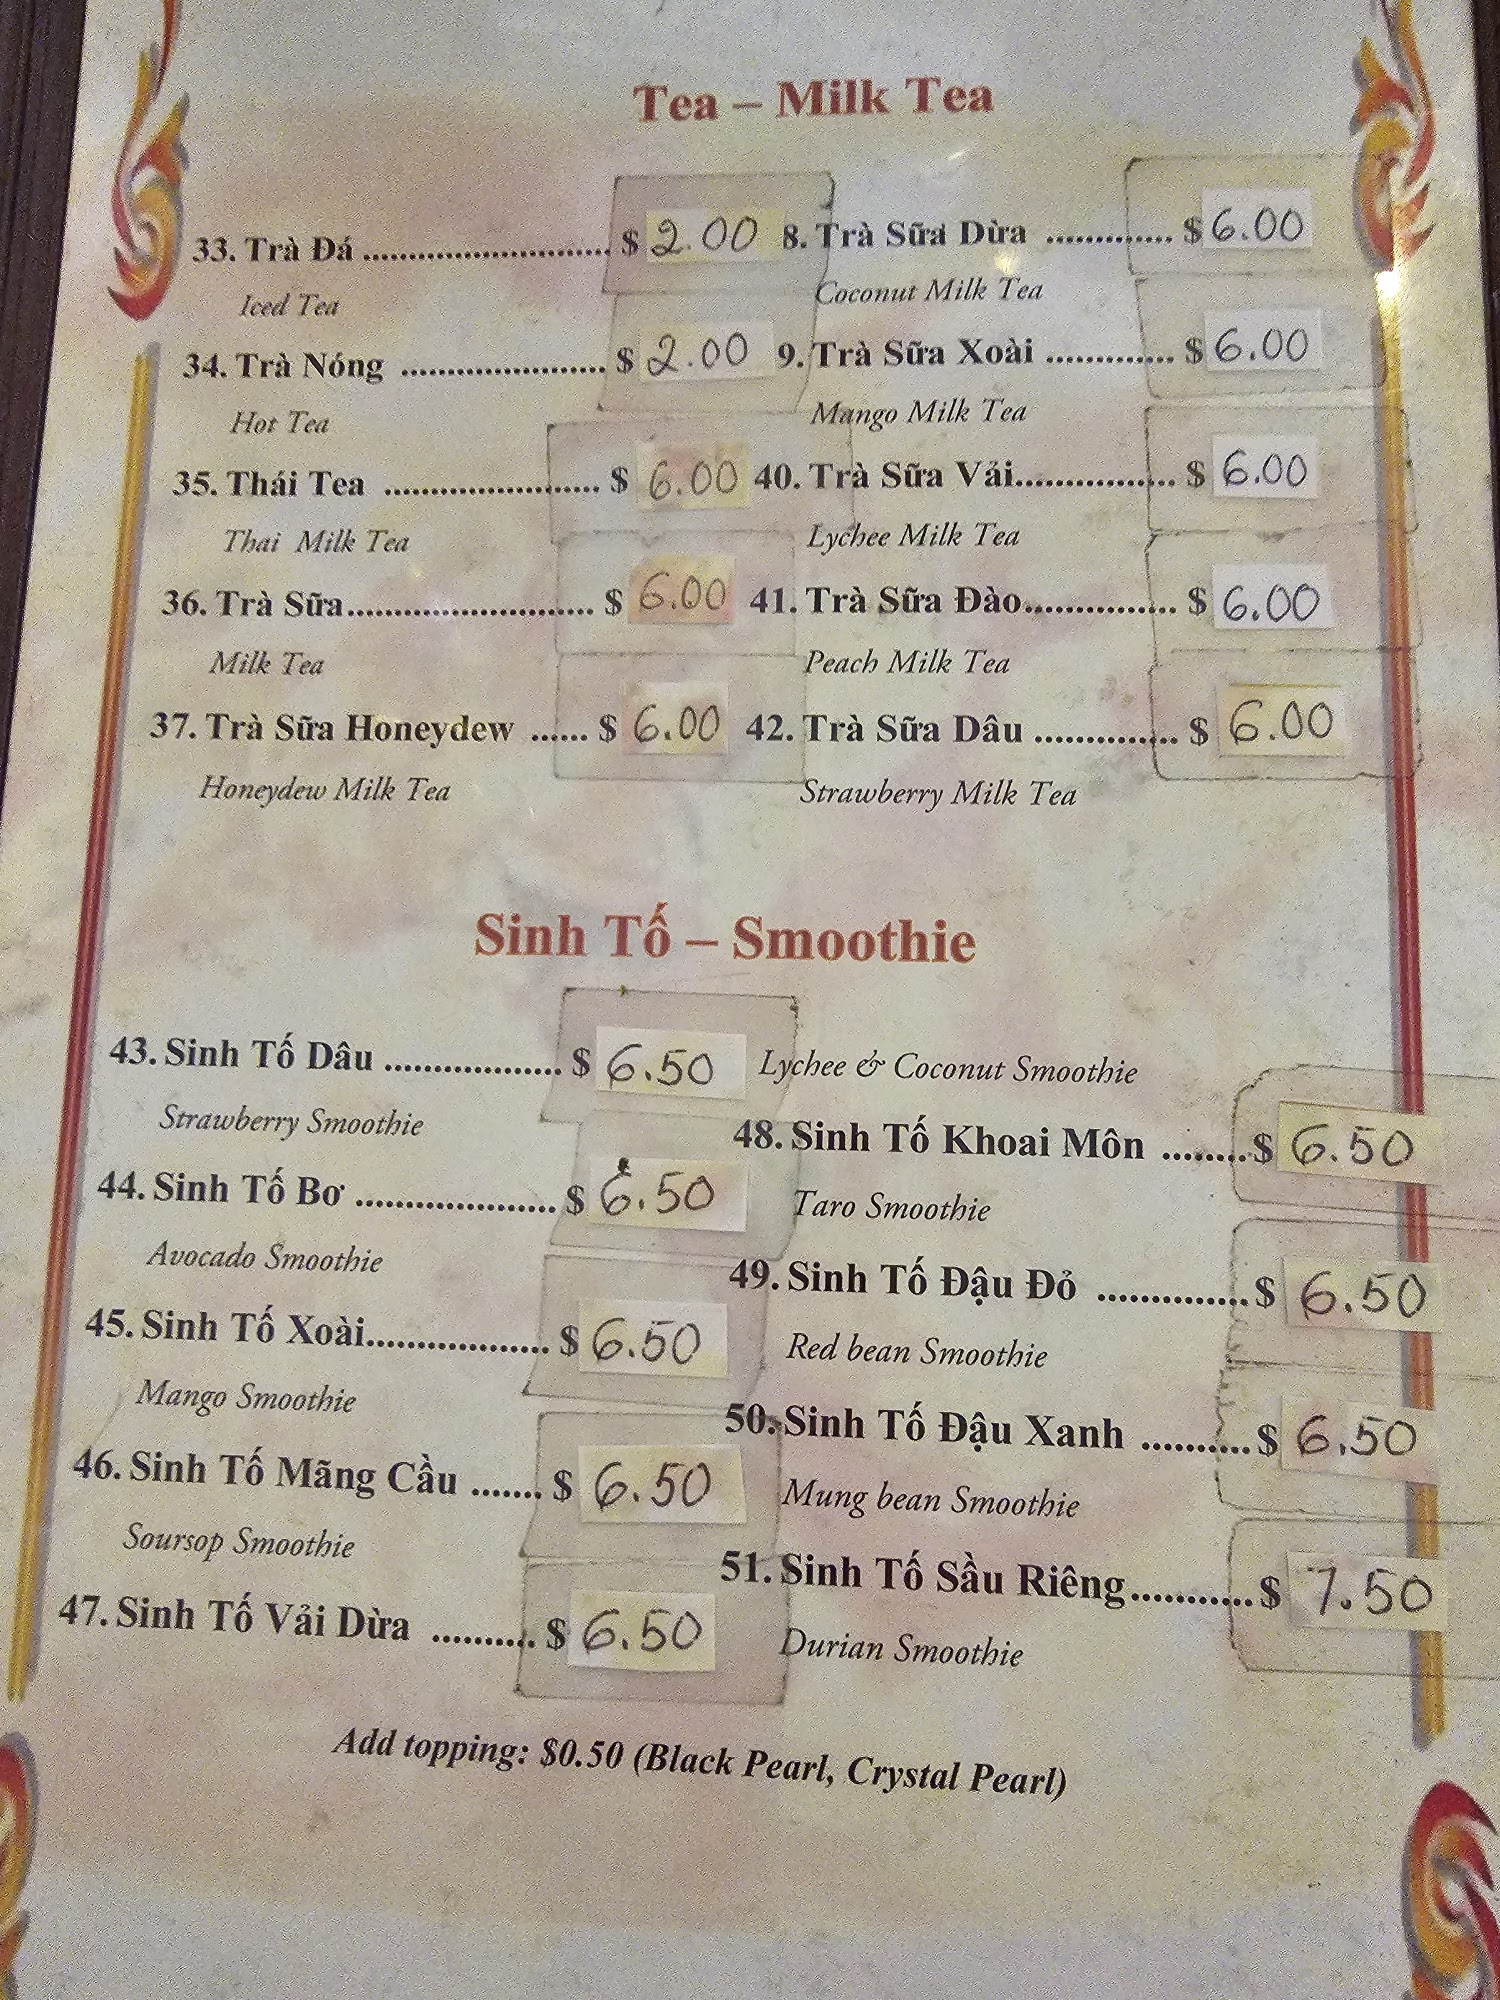 Tea – Milk Tea
33. Trà Đá ............................ $ 2.00
Iced Tea
34. Trà Nóng ....................... $ 2.00
Hot Tea
35. Thái Tea ........................ $ 6.00
Thai Milk Tea
36. Trà Sữa........................... $ 6.00
Milk Tea
37. Trà Sữa Honeydew ...... $ 6.00
Honeydew Milk Tea
8. Trà Sữa Dừa ............. $ 6.00
Coconut Milk Tea
9. Trà Sữa Xoài ............. $ 6.00
Mango Milk Tea
40. Trà Sữa Vải................ $ 6.00
Lychee Milk Tea
41. Trà Sữa Đào............... $ 6.00
Peach Milk Tea
42. Trà Sữa Dâu .............. $ 6.00
Strawberry Milk Tea
Sinh Tố – Smoothie
43. Sinh Tố Dâu .................. $ 6.50
Strawberry Smoothie
44. Sinh Tố Bơ .................... $ 6.50
Avocado Smoothie
45. Sinh Tố Xoài.................. $ 6.50
Mango Smoothie
46. Sinh Tố Mãng Cầu ....... $ 6.50
Soursop Smoothie
47. Sinh Tố Vải Dừa .......... $ 6.50
Lychee & Coconut Smoothie
48. Sinh Tố Khoai Môn ........ $ 6.50
Taro Smoothie
49. Sinh Tố Đậu Đỏ .............. $ 6.50
Red bean Smoothie
50. Sinh Tố Đậu Xanh .......... $ 6.50
Mung bean Smoothie
51. Sinh Tố Sầu Riêng........... $ 7.50
Durian Smoothie
Add topping: $0.50 (Black Pearl, Crystal Pearl)